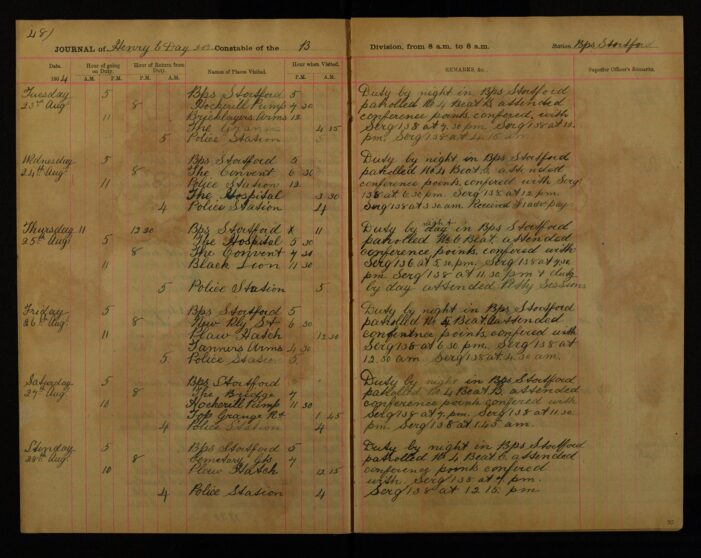 481
JOURNAL of Henry C Day 202 Constable of the B Division, from 8 a.m. to 8 a.m. Station Bps Stortford
Date. Hour of going on Duty. Hour of Return from Duty. Names of Places Visited. Hour when Visited. REMARKS, &c. Superior Officer's Remarks.
1904 A.M. P.M. A.M. P.M. P.M. A.M.
Tuesday 5 Bps Stortford 5 Duty by night in Bps Stortford
23rd Aug. 8 Hockerill Pump 7 30 patrolled No 4 Beat B attended
11 Bricklayers Arms 12 conference points confered with
The 4 15 Serg 138 at 7.30 pm. Serg 138 at 12.
5 Police Station pm. Serg 138 at 4.15 am
Wednesday 5 Bps Stortford 5 Duty by night in Bps Stortford
24th Aug. 8 The Convent 6 30 patrolled No 4 Beat attended
11 Police Station 12 conference points confered with Serg
The Hospital 3 30 138 at 6.30 pm Serg 138 at 12 pm.
4 Police Station 4 Serg 138 at 3.30 am Received pay
Thursday 11 12 30 Bps Stortford x 11 Duty by day night in Bps Stortford
25th Aug. 5 The Hospital 5 30 patrolled No 6 Beat attended
8 The Convent 7 30 conference points confered with
11 Black Lion 11 30 Serg 136 at 5.30 pm. Serg 138 at 7.30
pm Serg 138 at 11.30 pm + duty
5 Police Station 5 by day attended Petty Sessions
Friday 5 Bps Stortford 5 Duty by night in Bps Stortford
26th Aug. 8 New Rly St 6 30 patrolled No 4 Beat attended
11 Plaw Hatch 12 30 conference points confered with
Tanners Arms 4 30 Serg 138 at 6.30 pm. Serg 138 at
5 Police Station 5 12.30 am Serg 138 at 4.30 am.
Saturday 5 Bps Stortford Duty by night in Bps Stortford
27th Aug. 8 The Bridge 7 patrolled No 4 Beat B. attended
10 Hockerill Pump 11 30 conference points confered with
Top Grange Rd 1 45 Serg 138 at 7. pm. Serg 138 at 11.30
4 Police Station 4 pm. Serg 138 at 1.45 am.
Sunday 5 Bps Stortford 5 Duty by night in Bps Stortford
28th Aug. 8 Cemetery Gts 7 patrolled No 4 Beat C. attended
10 Plaw Hatch 12 15 conference points confered
with Serg 138 at 7. pm.
4 Police Station 4 Serg 138 at 12.15 pm.